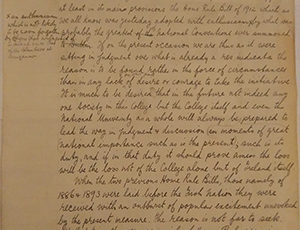 at least in its main provisions the Home Rule Bill of 1912 which as
we all know was yesterday adopted with enthusiasm by what was
probably the greatest of the National Conventions ever summoned
to Dublin. If on the present occasion we are thus as it were
sitting in judgment over what is already a res judicata the
reason is to be found together in the force of circumstances
than in any lack of desire or courage to take the initiative
It is much to be desired that in the future not indeed any
one society in this College but the College itself and even the
National University as a whole will always be prepared to
lead the way in judgment & discussion on moments of great
national importance such as is the present, such is its
duty, and if in that duty it should prove amiss the loss
will be the loss not of the College alone but of Ireland itself
When the two previous Home Rule Bills, those namely of
1886 & 1893 were laid before the Irish Nation they were
received with an outburst of popular excitement unevoked
by the present measure. The reason is not far to seek.
an enthusiasm
which is not likely
to be soon forgotten